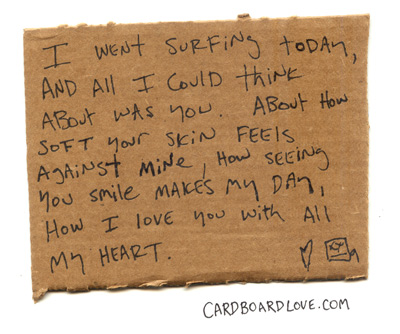 I WENT SURFING TODAY,
AND All I COULD THINK
ABOUT WAS YOU. ABOUT HOW
SOFT YOUR SKIN FEELS
AGAINST MINE, HOW SEEING
YOU SMILE MAKES MY DAY,
HOW I LOVE YOU WITH All
MY HEART.
CARDBOARDLOVE.COM